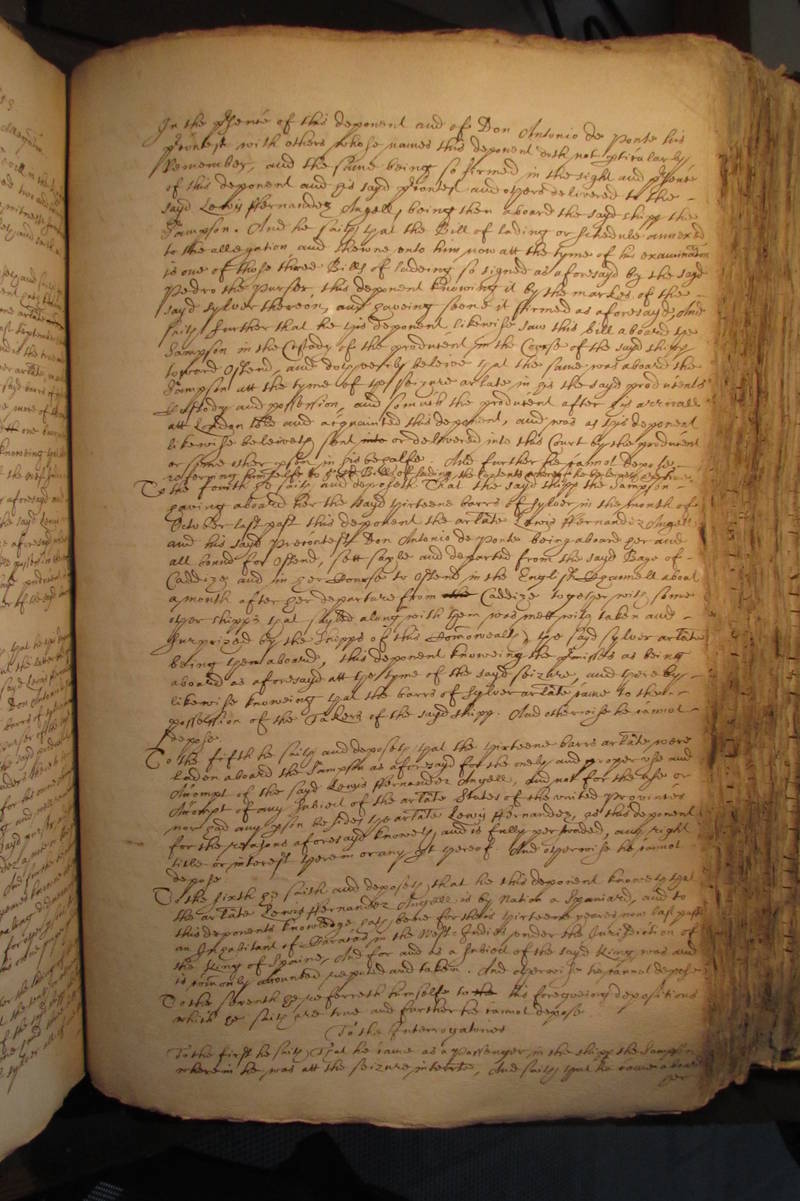 In the p'sence of this deponent and of Don Antonio de Ponte his
p'contest with others whose names this deponent doth not p'ticularly
remember, and the same being so firmed in the sight and p'sence
of this deponent and his sayd p'contest and others delivered to the
sayd Lewis Hernandez Angell, being then aboard the sayd shipp the
Sampson. And he saith that the Bill of lading or schedule annexed
to the allegation and shewne unto him now att the tyme of his examination
is one of those three Bills of ladeing so signed as aforesayd by the sayd
Pedro the Purser this deponent knowing it by the markes of the
sayd sylver thereon, and haveing seene it firmed as aforesayd, And
saith further that he this deponent likewise saw this bill aboard the
Sampson in the Custody of the producent In the Course of the sayd shipp
toward Ostend, and doth verily beleive that the same was aboard the
Sampson att the tyme of the seizure arlate in his the sayd producents
Custody and possession, and somuch the producent after his arrivall
att London and acquainted this deponent, and was as this deponent
likewise beleiveth sent into or delivered into this Court by the producent
or some other p'son in his behalfe. And further he cannot depose
referring himselfe to the sayd Bills of lading
To the fourth he saith and deposeth That the sayd shipp the Sampson
having aboard her the sayd thirteene barrs of sylver in the month of
October last past this deponent the arlate Lewis Hernandez Angell
and his sayd Precontest Don Antonio de Ponte being aboard her and
all bound for Ostend, sett sayle and departed from the sayd Baye of
Caddize and in her Course to Ostend in the English Channell about
a month after her departure from the Caddize together with some
other shipps that sayled along with them was mett with taken and
surprized by the shipps of this Comonwealth, the sayd sylver arlate
being then aboard, this deponent knoweing the p'misses as being
aboard as aforesayd att the tyme of the sayd seizure, and thereby
likewise knoweing that the barrs of sylver arlate came to the
possession of the Takers of the sayd shipp. And otherwise he cannot
depose.
To the fifth he saith and deposeth that the thirteene barrs arlate were
laden aboard the Sampson as aforesayd for the onely and proper use and
Accompt of the sayd Lewis Hernandez Angell, And not for the use or
Accompt of any Subiect of the arlate States of the united Provinces
nor had any p'son besides the arlate Lewis Hernandez, as this deponent
for the reasons aforesayd knoweth, and is fully perswaded, any right
title or interest therein or any p't thereof. And otherwise he cannot
depose
To the sixth he saith and deposeth, that he this deponent knoweth that
the arlate Lewis Hernandez Angell is by Nation a Spaniard, and to
this deponents knowledge hath bene for theis thirteene yeares now last past
an Inhabitant of Caracas in the West Indies under the Iurisdiction of
the King of Spaine, And for and as a Subiect of the sayd King was and
is com'only accounted reputed and taken. And otherwise he cannot depose
To the seventh he referreth himselfe to the his foregoeing depositions
which he saith are true and further he cannot depose
To the Interrogatories
To the first he saith That he came as a Passenger in the shipp the Sampson
wherein he was att the seizure interr'te, And saith that he came aboard
her